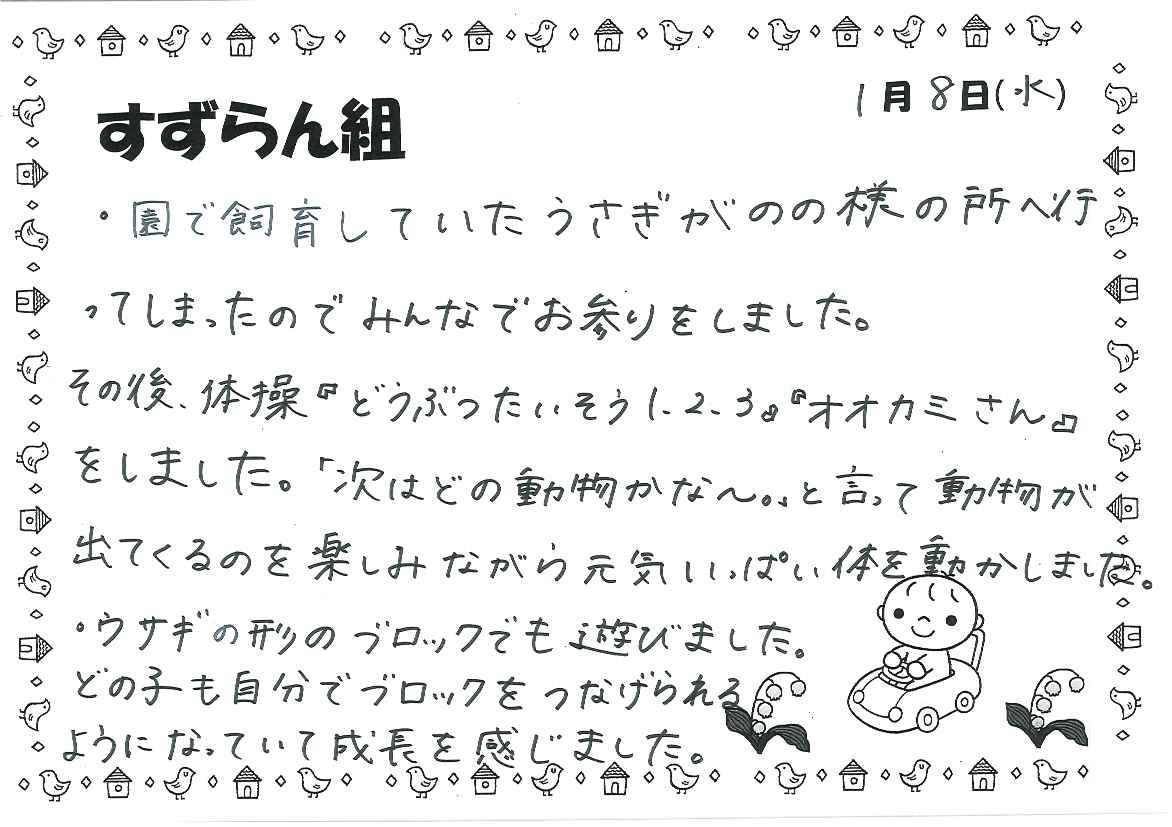 1月8日(水)
すずらん組
・園で飼育していたうさぎがのの様の所へ行
ってしまったのでみんなでお参りをしました。
その後、体操『どうぶつたいそう1.2.3』『オオカミさん』
をしました。「次はどの動物かな〜。」と言って動物が
出てくるのを楽しみながら元気いっぱい体を動かしました。
・ウサギの形のブロックでも遊びました。
どの子も自分でブロックをつなげられる
ようになっていて成長を感じました。